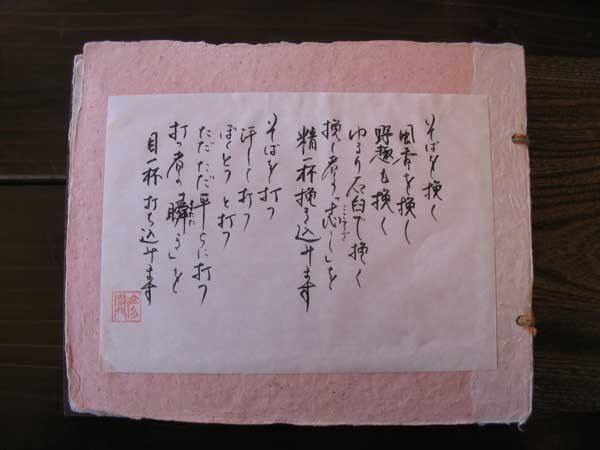 そばを挽く
風香を挽く
野趣も挽く
ゆるり石臼で挽く
挽く者の「志し」を
こころざ
精一杯挽き込みます
そばを打つ
汗して打つ
と打つ
ただただ平らに打つ
打つ者の「瞬き」を
またた
目一杯打ち込みます